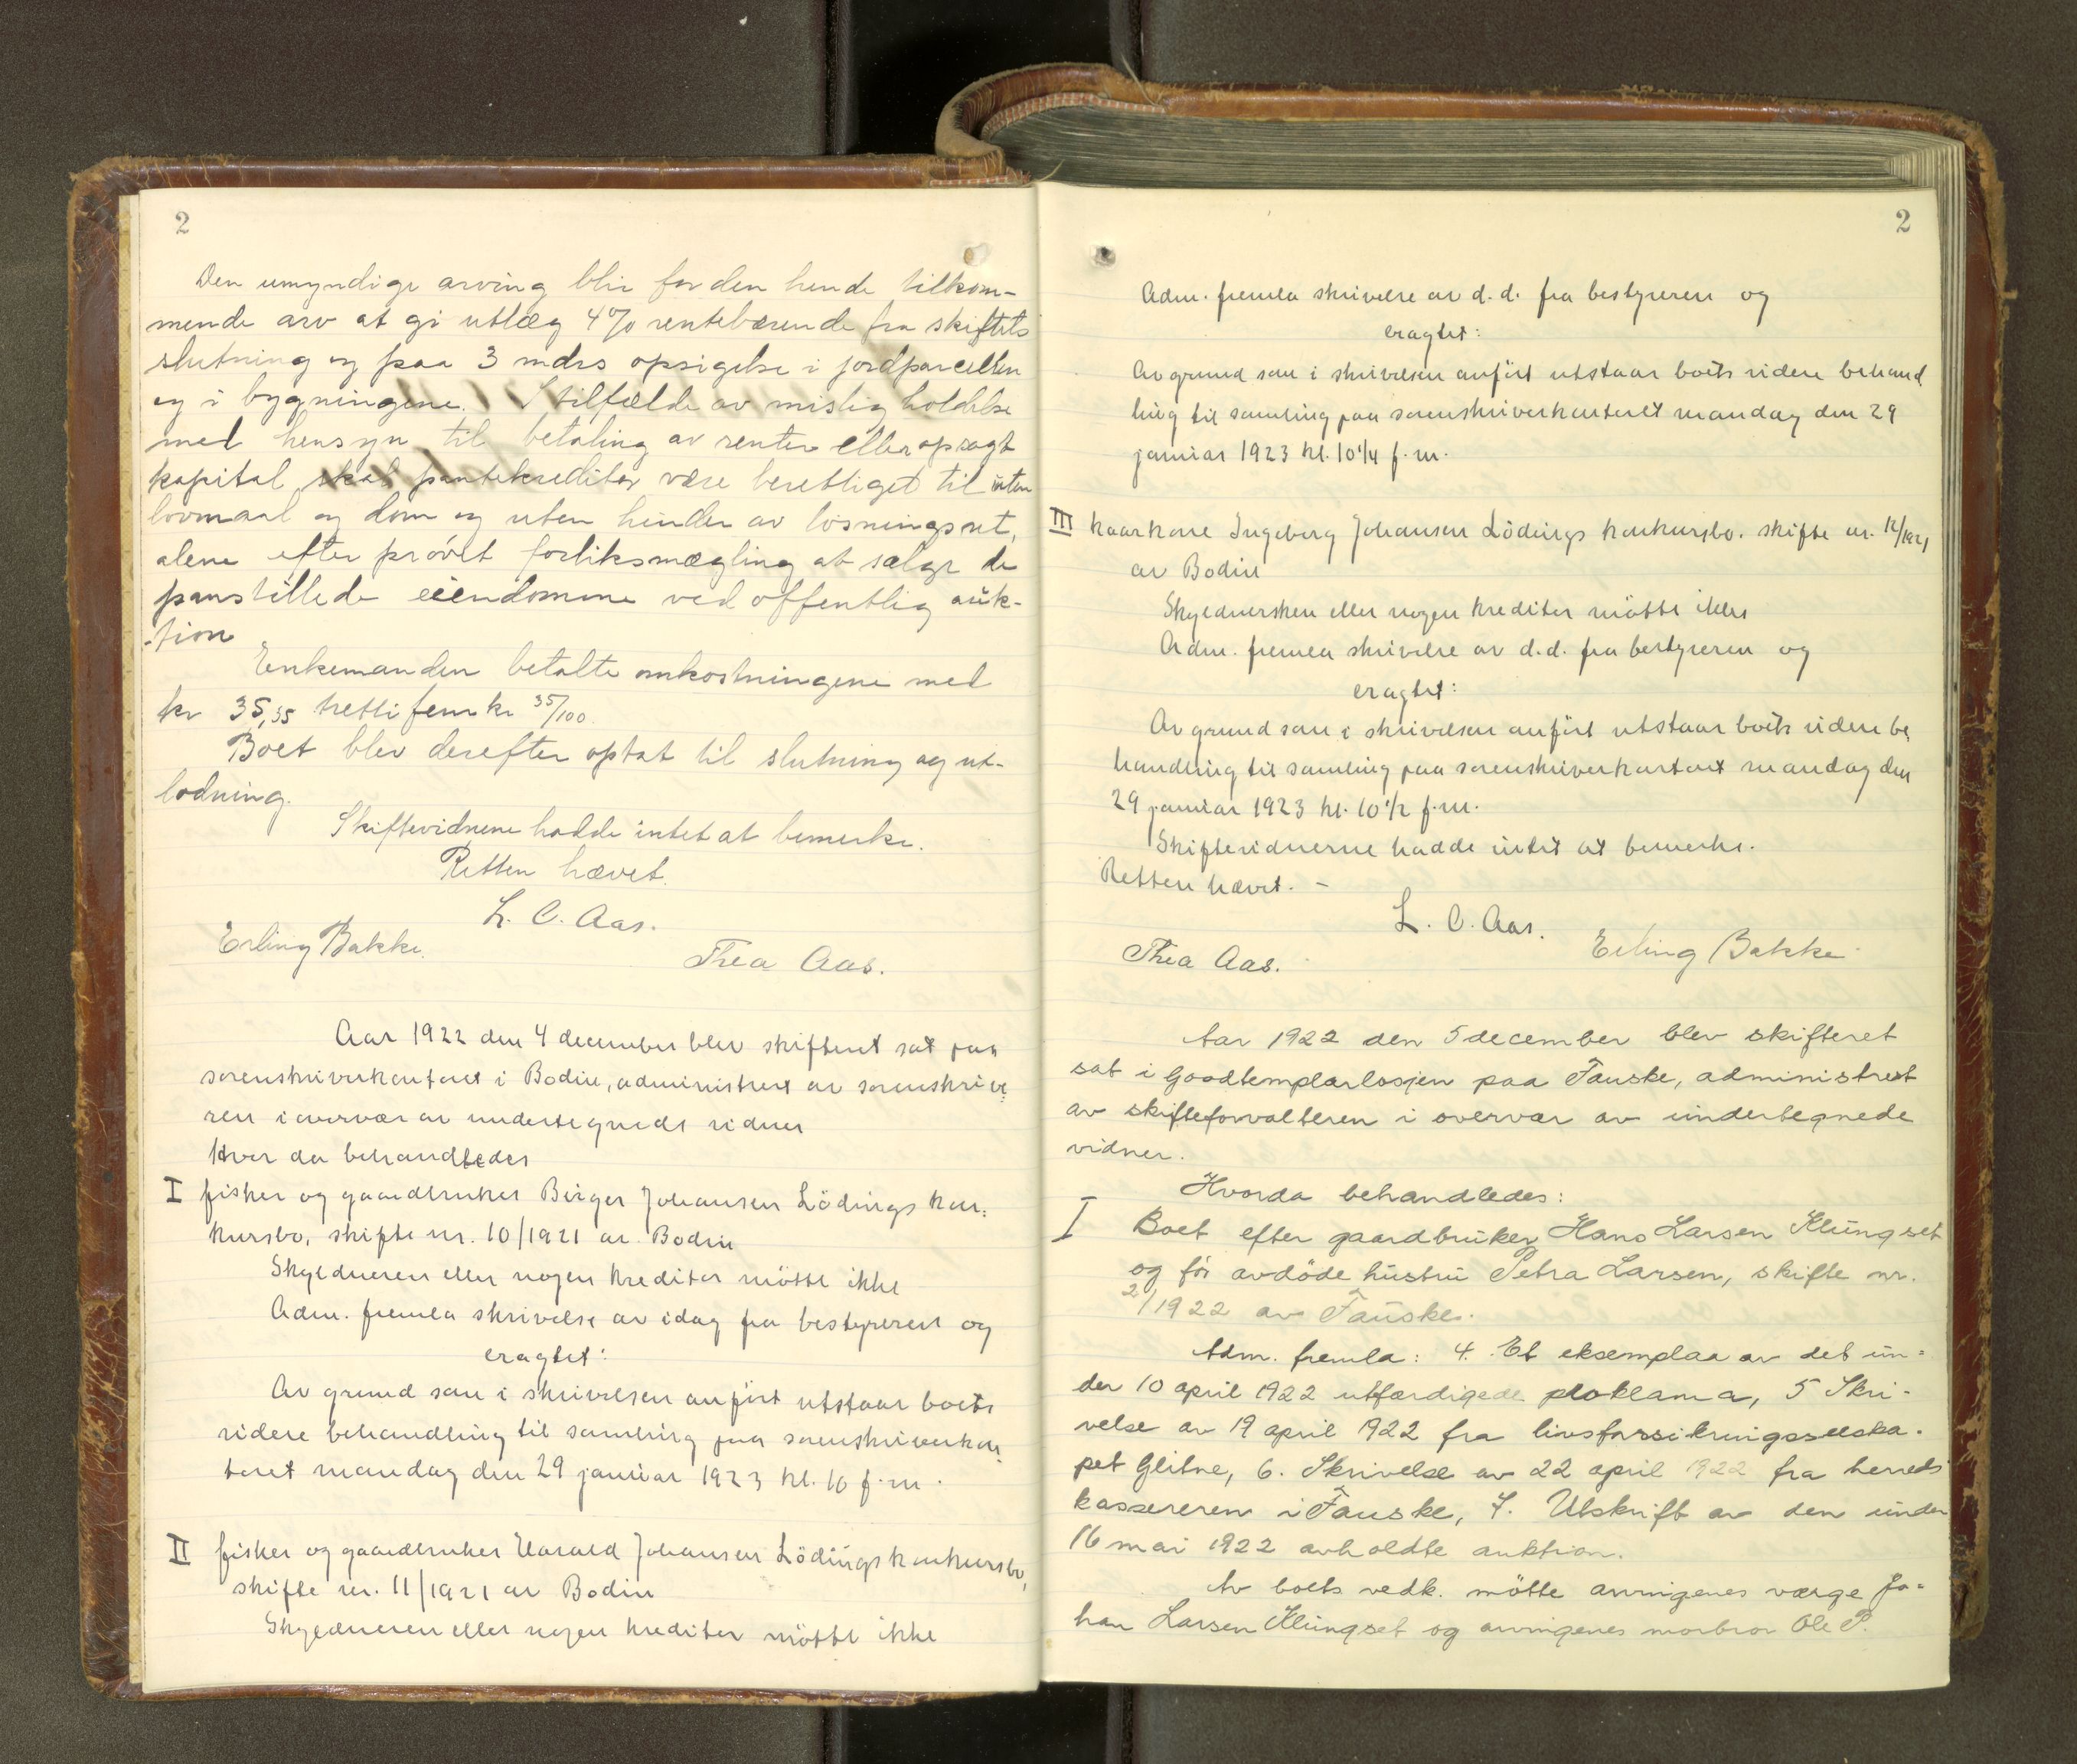 2
Den umyndige arving blir for den hende tilkom-
mende arv at gi utlæg 4% rentebærende fra skiftets
slutning og paa 3 mdrs opsigelse i jordparcellen
og i bygningene. I tilfælde av mislig holdelse
med hensyn til betaling av renter eller opsagt
kapital skal pantekreditor være berettiget til uten
lovmaal og dom og uten hinder av løsningsret,
alene efter prøvet forliksmægling at sælge de
panstillede eiendomme ved offentlig auk-
-tion
Enkemanden betalte omkostningene med
kr 35,35 trettifem kr 35/100.
Boet blev derefter optat til slutning og ut-
lodning.
Skiftevidnene hadde intet at bemerke.
Retten hævet.
L. C. Aas.
Erling Bakke.
Thea Aas.
Aar 1922 den 4 december blev skifteret sat paa
sorenskriverkontoret i Bodin, administrert av sorenskrive
ren i overvær av undertegnede vidner
Hvor da behandledes
I fisker og gaardbruker Birger Johansen Lödings kon-
kursbo, skifte nr. 10/1921 av Bodin
Skyldneren eller nogen kreditor mötte ikke
Adm. fremla skrivelse av idag fra bestyreren og
eragtet:
Av grund som i skrivelsen anfört utstaar boets
videre behandling til samling paa sorenskriverkon
toret mandag den 29 januar 1923 kl. 10 f.m.
II fisker og gaardbruker Harald Johansen Lödings konkursbo,
skifte nr. 11/1921 av Bodin
Skyldneren eller nogen kreditor mötte ikke
2
Adm. fremla skrivelse av d.d. fra bestyreren og
eragtet:
Av grund som i skrivelsen anfört utstaar boets videre behand
ling til samling paa sorenskriverkontoret mandag den 29
januar 1923 kl. 10 1/4 f.m.
III kaarkone Ingeborg Johansen Lödings konkursbo. skifte nr. 12/1921
av Bodin
Skyldnersken eller nogen kreditor mötte ikke
Adm. fremla skrivelse av d.d. fra bestyreren og
eragtet:
Av grund som i skrivelsen anfört utstaar boets videre be
handling til samling paa sorenskriverkontoret mandag den
29 januar 1923 kl. 10 1/2 f.m.
Skiftevidnerne hadde intet at bemerke.
Retten hævet. -
L. C. Aas.
Thea Aas.
Erling Bakke
Aar 1922 den 5 december blev skifteret
sat i Goodtemplarlosjen paa Fauske, administrert
av skifteforvalteren i overvær av undertegnede
vidner.
Hvorda behandledes:
I Boet efter gaardbruker Hans Larsen Klungset
og för avdöde hustru Petra Larsen, skifte nr.
2/1922 av Fauske.
Adm. fremla: 4. Et eksemplaa av det un=
der 10 april 1922 utfærdigede ploklama, 5 Skri-
velse av 19 april 1922 fra livsforsikringsselska-
pet Glitne, 6. Skrivelse av 22 april 1922 fra herreds
kassereren i Fauske, 7. Utskrift av den under
16 mai 1922 avholdte auktion.
Av boets vedk. mötte arvingenes værge Jo=
han Larsen Klungset og arvingenes morbror Ole P.